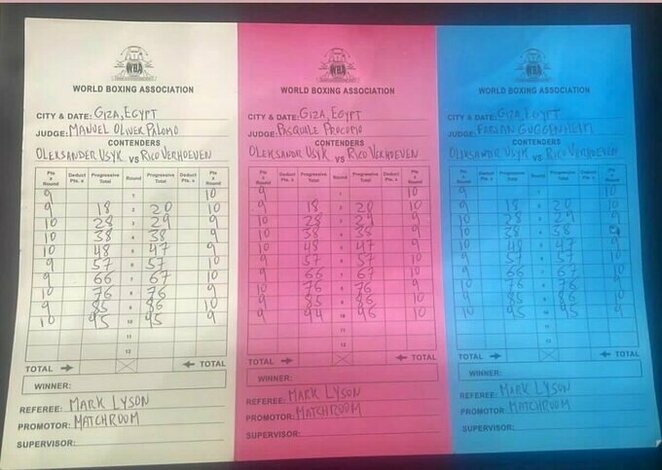 WBA
WORLD BOXING ASSOCIATION
CITY & DATE: GIZA, EGYPT
JUDGE: MANUEL OLIVER PALOMO
CONTENDERS
OLEKSANDER USYK VS RICO VERHOEVEN
Pts x Round Deduct Pts. x Progressive Total Round Progressive Total Deduct Pts. x Pts x Round
9 1 10
9 18 2 20 10
10 28 3 29 9
10 38 4 38 9
10 48 5 47 9
9 57 6 57 10
9 66 7 67 10
10 76 8 76 9
9 85 9 86 10
10 95 10 95 9
11
12
TOTAL TOTAL
WINNER:
REFEREE: MARK LYSON
PROMOTOR: MATCHROOM
SUPERVISOR:
WBA
WORLD BOXING ASSOCIATION
CITY & DATE: GIZA, EGYPT
JUDGE: PASQUALE PROCOPIO
CONTENDERS
OLEKSANDR USYK VS RICO VERHOEVEN
Pts x Round Deduct Pts. x Progressive Total Round Progressive Total Deduct Pts. x Pts x Round
9 1 10
9 18 2 20 10
10 28 3 29 9
10 38 4 38 9
10 48 5 47 9
9 57 6 57 10
9 66 7 67 10
10 76 8 76 9
9 85 9 86 10
9 94 10 96 10
11
12
TOTAL TOTAL
WINNER:
REFEREE: MARK LYSON
PROMOTOR: MATCHROOM
SUPERVISOR:
WBA
WORLD BOXING ASSOCIATION
CITY & DATE: GIZA, EGYPT
JUDGE: FABIAN GUGGENHEIM
CONTENDERS
OLEKSANDR USYK VS RICO VERHOEVEN
Pts x Round Deduct Pts. x Progressive Total Round Progressive Total Deduct Pts. x Pts x Round
9 1 10
9 18 2 20 10
10 28 3 29 9
10 38 4 38
10 48 5 47 9
9 57 6 57 10
9 66 7 67 10
10 76 8 76 9
9 85 9 86 10
10 95 10 95 9
11
12
TOTAL TOTAL
WINNER:
REFEREE: MARK LYSON
PROMOTOR: MATCHROOM
SUPERVISOR: